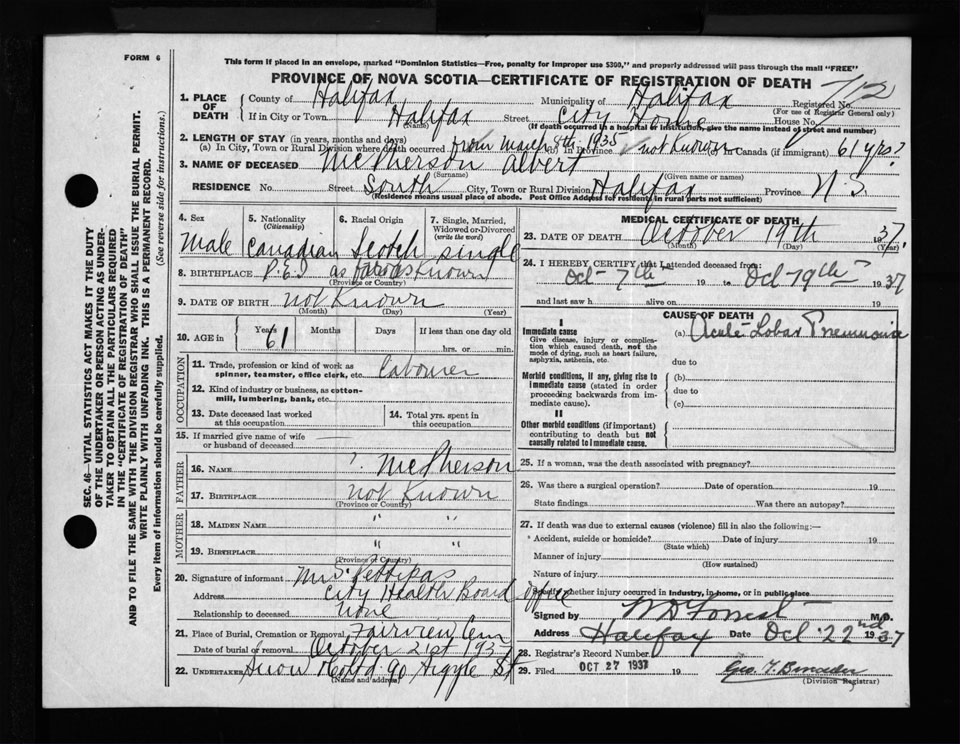 FORM 6
This form if placed in an envelope, marked "Dominion Statistics—Free, penalty for improper use $300," and properly addressed will pass through the mail "FREE"
PROVINCE OF NOVA SCOTIA—CERTIFICATE OF REGISTRATION OF DEATH
712
1. PLACE OF DEATH County of Halifax Municipality of Halifax Registered No.
(For use of Registrar General only)
If in City or Town Halifax Street City Home House No.
(Name) (If death occurred in a hospital or institution, give the name instead of street and number)
2. LENGTH OF STAY (in years, months and days)
(a) In City, Town or Rural Division where death occurred from March 9th 1935 (b) In Province not Known (c) in Canada (if immigrant) 61 yrs?
3. NAME OF DECEASED McPherson Albert
(Surname) (Given name or names)
RESIDENCE No. Street South City, Town or Rural Division Halifax Province N.S.
(Residence means usual place of abode. Post Office Address for residents in rural parts not sufficient)
4. Sex 5. Nationality (Citizenship) 6. Racial Origin 7. Single, Married, Widowed or Divorced (write the word)
Male Canadian Scotch single
8. BIRTHPLACE P.E.I as far as Known
(Province or Country)
9. DATE OF BIRTH not Known
(Month) (Day) (Year)
10. AGE in Years Months Days If less than one day old
61 hrs. or min.
OCCUPATION
11. Trade, profession or kind of work as spinner, teamster, office clerk, etc. Labourer
12. Kind of industry or business, as cotton-mill, lumbering, bank, etc.
13. Date deceased last worked at this occupation 14. Total yrs. spent in this occupation
15. If married give name of wife or husband of deceased —
FATHER
16. NAME ? McPherson
17. BIRTHPLACE not Known
(Province or Country)
MOTHER
18. MAIDEN NAME " "
19. BIRTHPLACE " "
(Province or Country)
20. Signature of informant Mrs. Pettipas
Address City Health Board office
Relationship to deceased none
21. Place of Burial, Cremation or Removal Fairview Cem
Date of burial or removal October 21st 1937
22. UNDERTAKER Snow & Co Ltd 90 Argyle St
(Name and address)
MEDICAL CERTIFICATE OF DEATH
23. DATE OF DEATH October 19th 1937.
(Month) (Day) (Year)
24. I HEREBY CERTIFY, that I attended deceased from:
Oct- 7th 19 to Oct 19th 1937
and last saw h alive on 19
CAUSE OF DEATH
I
Immediate cause (a) Acute Lobar Pneumonia
Give disease, injury or complication which caused death, not the mode of dying, such as heart failure, asphyxia, asthenia, etc.
due to
Morbid conditions, if any, giving rise to immediate cause (stated in order proceeding backwards from immediate cause).
(b)
due to
(c)
II
Other morbid conditions (if important) contributing to death but not causally related to immediate cause.
25. If a woman, was the death associated with pregnancy?
26. Was there a surgical operation? Date of operation 19
State findings Was there an autopsy?
27. If death was due to external causes (violence) fill in also the following:—
Accident, suicide or homicide? Date of injury 19
(State which)
Manner of injury
(How sustained)
Nature of injury
Specify whether injury occurred in industry, in home, or in public place
Signed by W D Forrest M.D.
Address Halifax Date Oct 22nd 1937
28. Registrar's Record Number
29. Filed OCT 27 1937 19
(Division Registrar)
SEC. 46—VITAL STATISTICS ACT MAKES IT THE DUTY
OF THE UNDERTAKER OR PERSON ACTING AS UNDERTAKER TO OBTAIN ALL THE PARTICULARS REQUIRED
IN THE "CERTIFICATE OF REGISTRATION OF DEATH"
AND TO FILE THE SAME WITH THE DIVISION REGISTRAR WHO SHALL ISSUE THE BURIAL PERMIT.
WRITE PLAINLY WITH UNFADING INK. THIS IS A PERMANENT RECORD.
Every item of information should be carefully supplied. (See reverse side for instructions.)